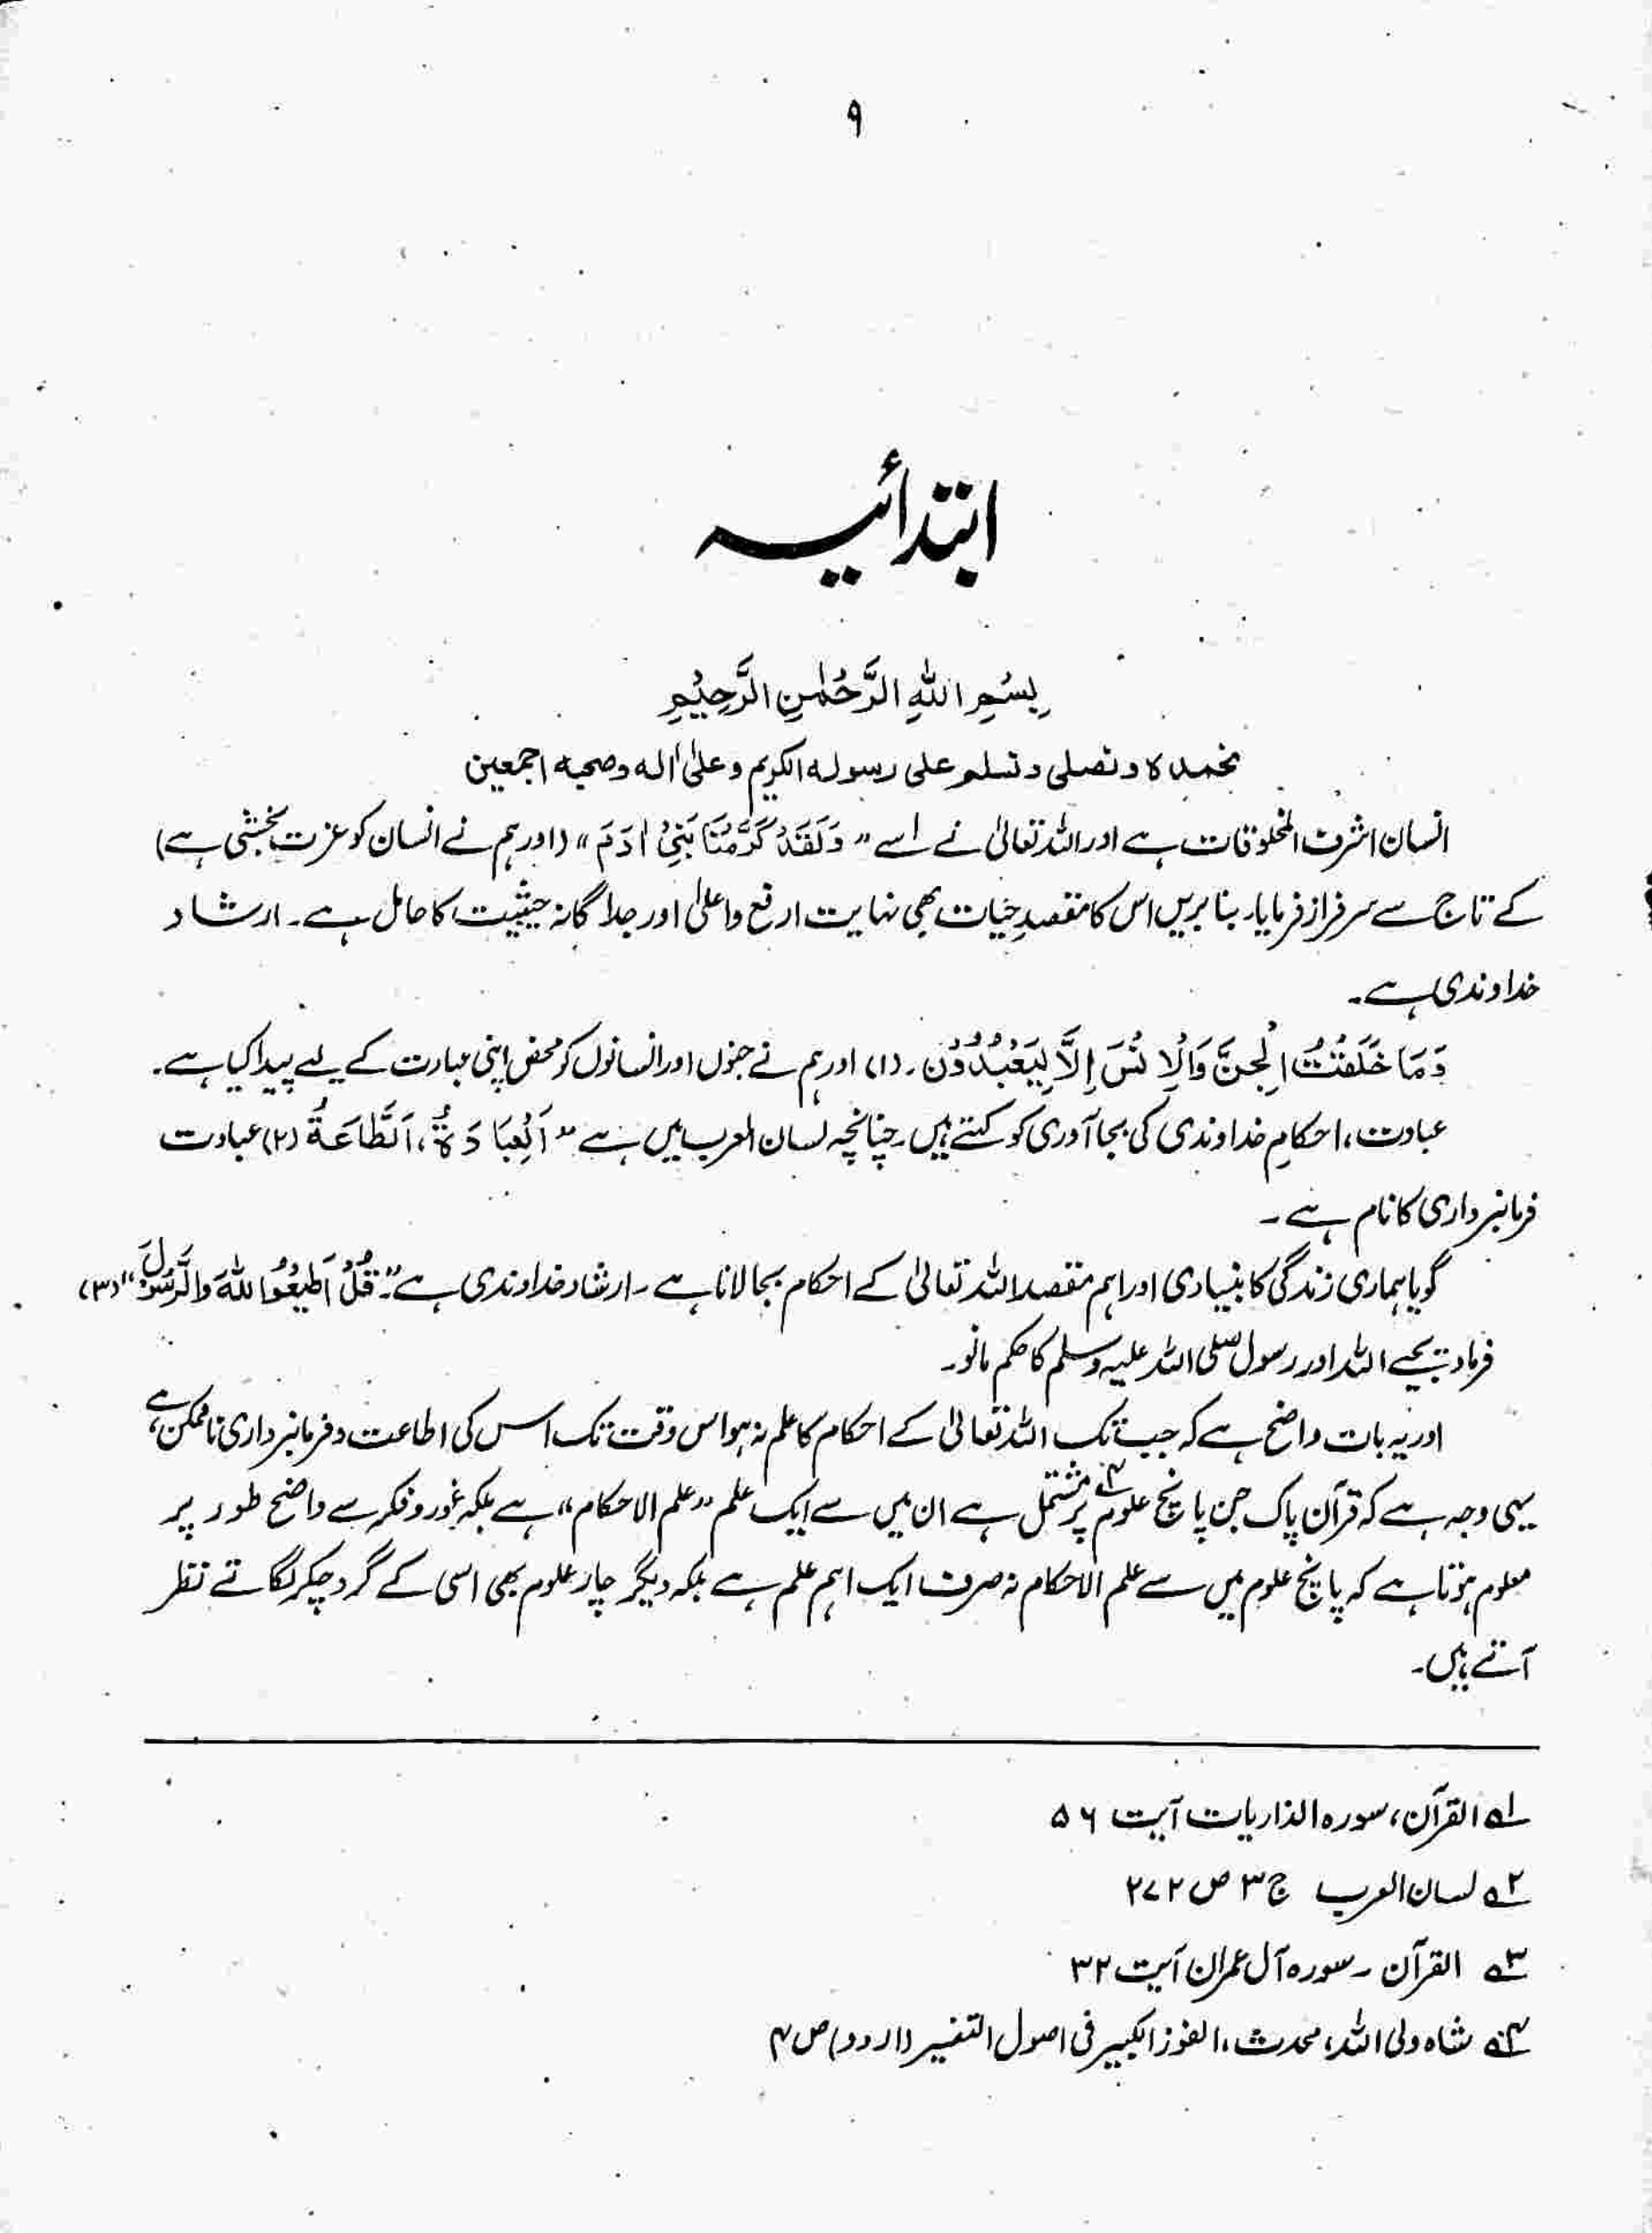 ۹
ابتدائیہ
بِسْمِ اللهِ الرَّحْمٰنِ الرَّحِيْمِ
نحمدہ و نصلی و نسلم علی رسولہ الکریم و علیٰ اٰلہ وصحبہ اجمعین
انسان اشرف المخلوقات ہے اور اللہ تعالیٰ نے اسے "وَلَقَدْ كَرَّمْنَا بَنِيْ اٰدَمَ" (اور ہم نے انسان کو عزت بخشی ہے)
کے تاج سے سرفراز فرمایا۔ بنا بریں اس کا مقصدِ حیات بھی نہایت ارفع واعلیٰ اور جداگانہ حیثیت کا حامل ہے۔ ارشاد
خداوندی ہے۔
وَمَا خَلَقْتُ الْجِنَّ وَالْاِنْسَ اِلَّا لِيَعْبُدُوْنَ۔ (۱) اور ہم نے جنوں اور انسانوں کو محض اپنی عبادت کے لیے پیدا کیا ہے۔
عبادت، احکامِ خداوندی کی بجا آوری کو کہتے ہیں۔ چنانچہ لسان العرب میں ہے "اَلْعِبَادَةُ، اَلطَّاعَةُ (۲) عبادت
فرمانبرداری کا نام ہے۔
گویا ہماری زندگی کا بنیادی اور اہم مقصد اللہ تعالیٰ کے احکام بجا لانا ہے۔ ارشاد خداوندی ہے۔ "قُلْ اَطِيْعُوا اللهَ وَالرَّسُوْلَ" (۳)
فرما دیجیے اللہ اور رسول صلی اللہ علیہ وسلم کا حکم مانو۔
اور یہ بات واضح ہے کہ جب تک اللہ تعالیٰ کے احکام کا علم نہ ہو اس وقت تک اس کی اطاعت و فرمانبرداری ناممکن ہے،
یہی وجہ ہے کہ قرآن پاک جن پانچ علوم ۴ پر مشتمل ہے ان میں سے ایک علم "علم الاحکام" ہے بلکہ غور و فکر سے واضح طور پر
معلوم ہوتا ہے کہ پانچ علوم میں سے علم الاحکام نہ صرف ایک اہم علم ہے بلکہ دیگر چار علوم بھی اسی کے گرد چکر لگاتے نظر
آتے ہیں۔
۱ القرآن، سورہ الذاریات آیت ۵۶
۲ لسان العرب ج ۳ ص ۲۷۲
۳ القرآن ۔ سورہ آل عمران آیت ۳۲
۴ شاہ ولی اللہ، محدث، الفوز الکبیر فی اصول التفسیر (اردو) ص ۴